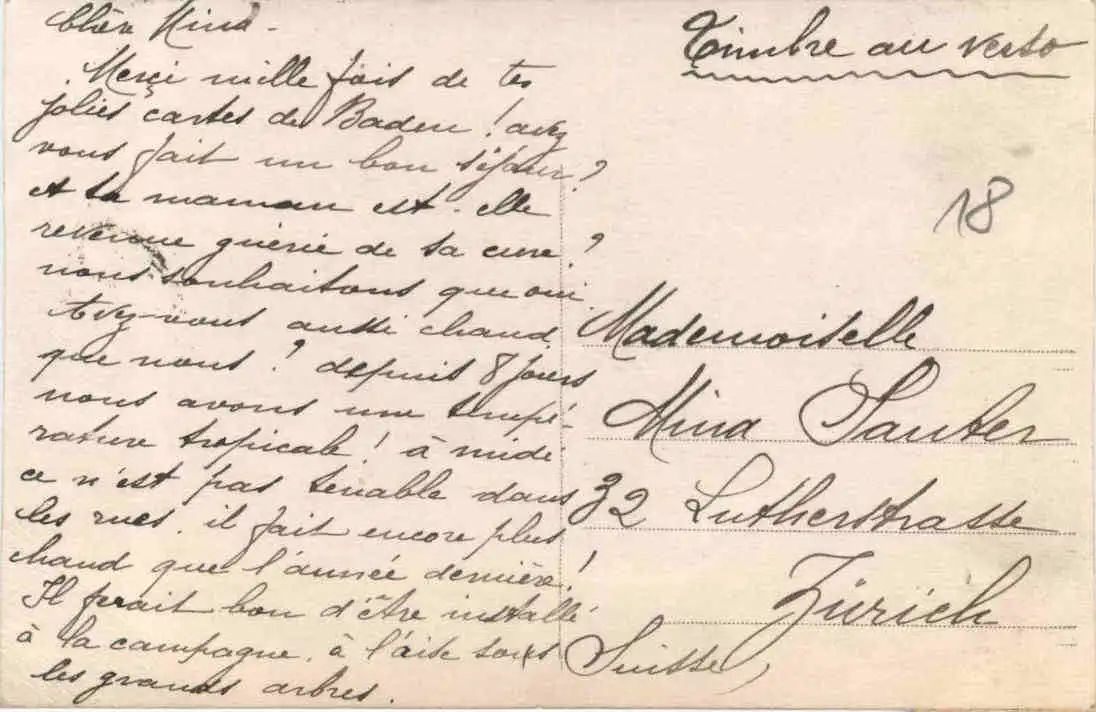 Chère Mina -
Merci mille fois de tes
jolies cartes de Baden ! avez
vous fait un bon séjour ?
et ta maman est-elle
revenue guérie de sa cure ?
nous souhaitons que oui
Avez-vous aussi chaud
que nous ? depuis 8 jours
nous avons une tempé-
rature tropicale ! à midi
ce n'est pas tenable dans
les rues. il fait encore plus
chaud que l'année dernière !
Il ferait bon d'être installé
à la campagne. à l'aise sous
les grands arbres.
Timbre au verso
18
Mademoiselle
Mina Sauter
32 Lutherstrasse
Zürich
Suisse